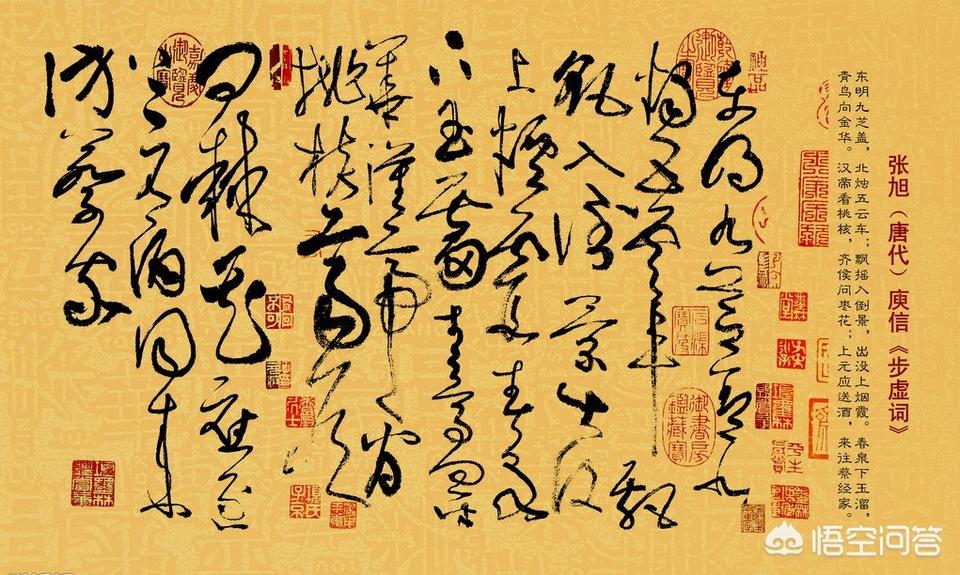 张旭（唐代）庾信《步虚词》
东明九芝盖，北烛五云车；飘摇入倒景，出没上烟霞。春泉下玉溜，
青鸟向金华。汉帝看桃核，齐侯问枣花；上元应送酒，来往蔡经家。
東明九芝蓋北
燭五雲車飄
飖入倒景出沒
上煙霞春泉
下玉霤青鳥向金
華漢帝看
桃核齊侯
問棘花應逐
上元酒同來
訪蔡家
悟空问答